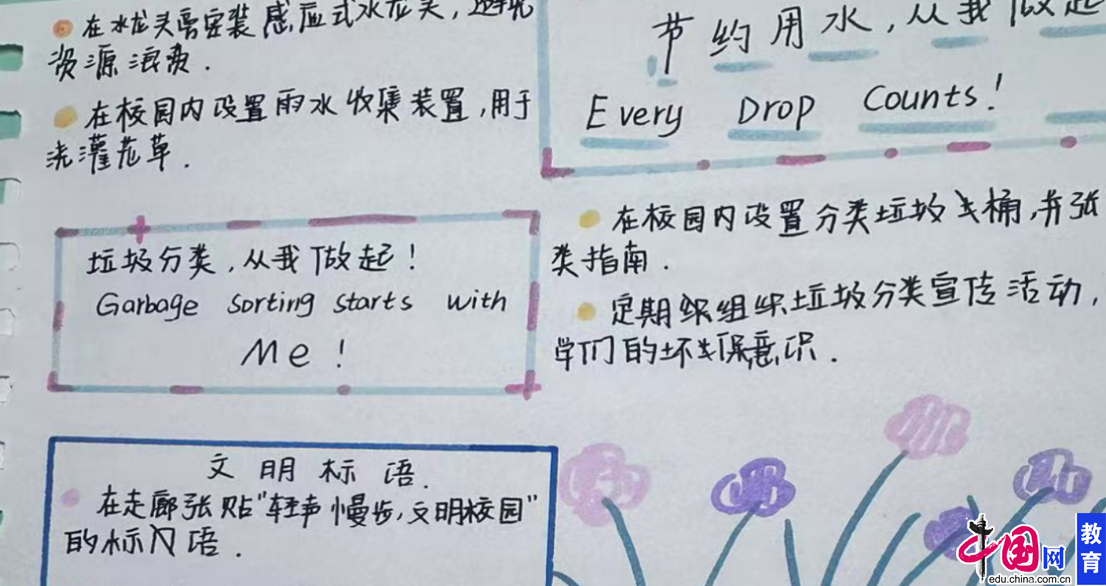 在水龙头需安装感应式水龙头,避免
资源浪费.
在校园内设置雨水收集装置,用于
浇灌花草.
节约用水,从我做起
Every Drop Counts!
垃圾分类,从我做起!
Garbage sorting starts with
Me!
在校园内设置分类垃圾桶,并张
类指南.
定期组织垃圾分类宣传活动,
学们的环保意识.
文明标语.
在走廊张贴"轻声慢步,文明校园"
的标语.
中国网
edu.china.com.cn
教育